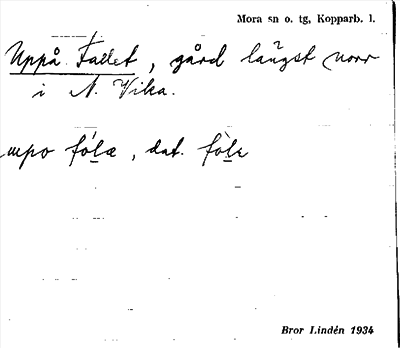 Mora sn o. tg, Kopparb. l.
Uppå Fallet, gård längst norr
i N. Vika.
upo fólæ, dat. fòlɛ
Bror Lindén 1934